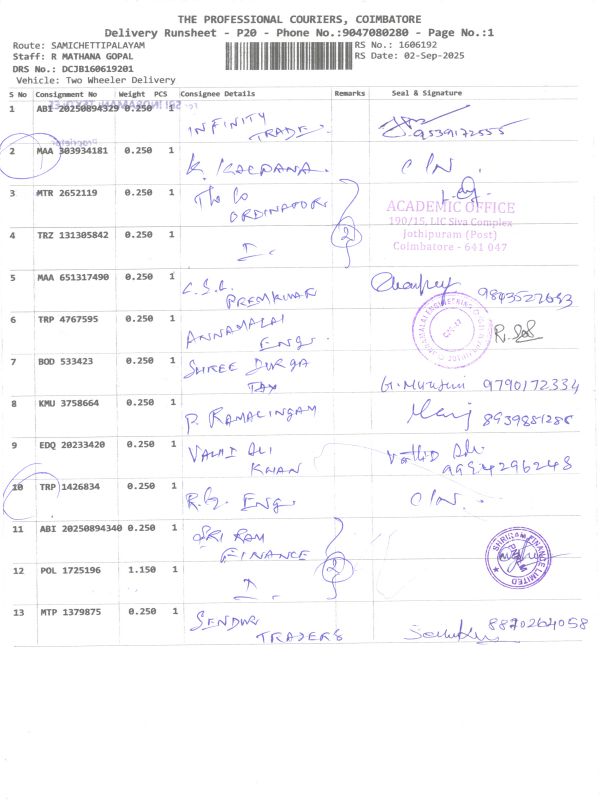 THE PROFESSIONAL COURIERS, COIMBATORE
Delivery Runsheet - P20 - Phone No.:9047080280 - Page No.:1
Route: SAMICHETTIPALAYAM
RS No.: 1606192
Staff: R MATHANA GOPAL
RS Date: 02-Sep-2025
DRS No.: DCJB160619201
Vehicle: Two Wheeler Delivery
S No Consignment No Weight PCS Consignee Details Remarks Seal & Signature
1 ABI 20250894329 0.250 1 INFINITY
TRADE. 9539172555
Proprietor
2 MAA 303934181 0.250 1 K. KALPANA. C/N.
3 MTR 2652119 0.250 1 The Co
ORDINATOR
ACADEMIC OFFICE
190/15, LIC Siva Complex
Jothipuram (Post)
Coimbatore - 641 047
4 TRZ 131305842 0.250 1 2
5 MAA 651317490 0.250 1 C.S.C.
PREMKUMAR
6 TRP 4767595 0.250 1 ANNAMALAI
ENG.
7 BOD 533423 0.250 1 SHREE DURGA
TAX 9790172334
8 KMU 3758664 0.250 1 P. RAMALINGAM
9 EDQ 20233420 0.250 1 VAHI ALI
KHAN 9994296248
10 TRP 1426834 0.250 1 R.G. ENG. C/N.
11 ABI 20250894340 0.250 1 SRI RAM
FINANCE
SHRIRAM FINANCE LIMITED
12 POL 1725196 1.150 1 2
13 MTP 1379875 0.250 1 SENDUR
TRADERS 8870264058